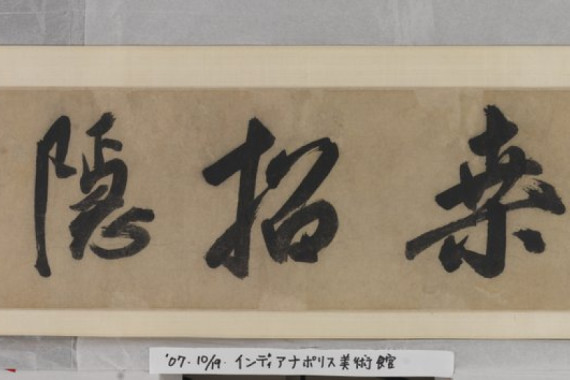 桒招隠
'07. 10/19. インディアナポリス美術館